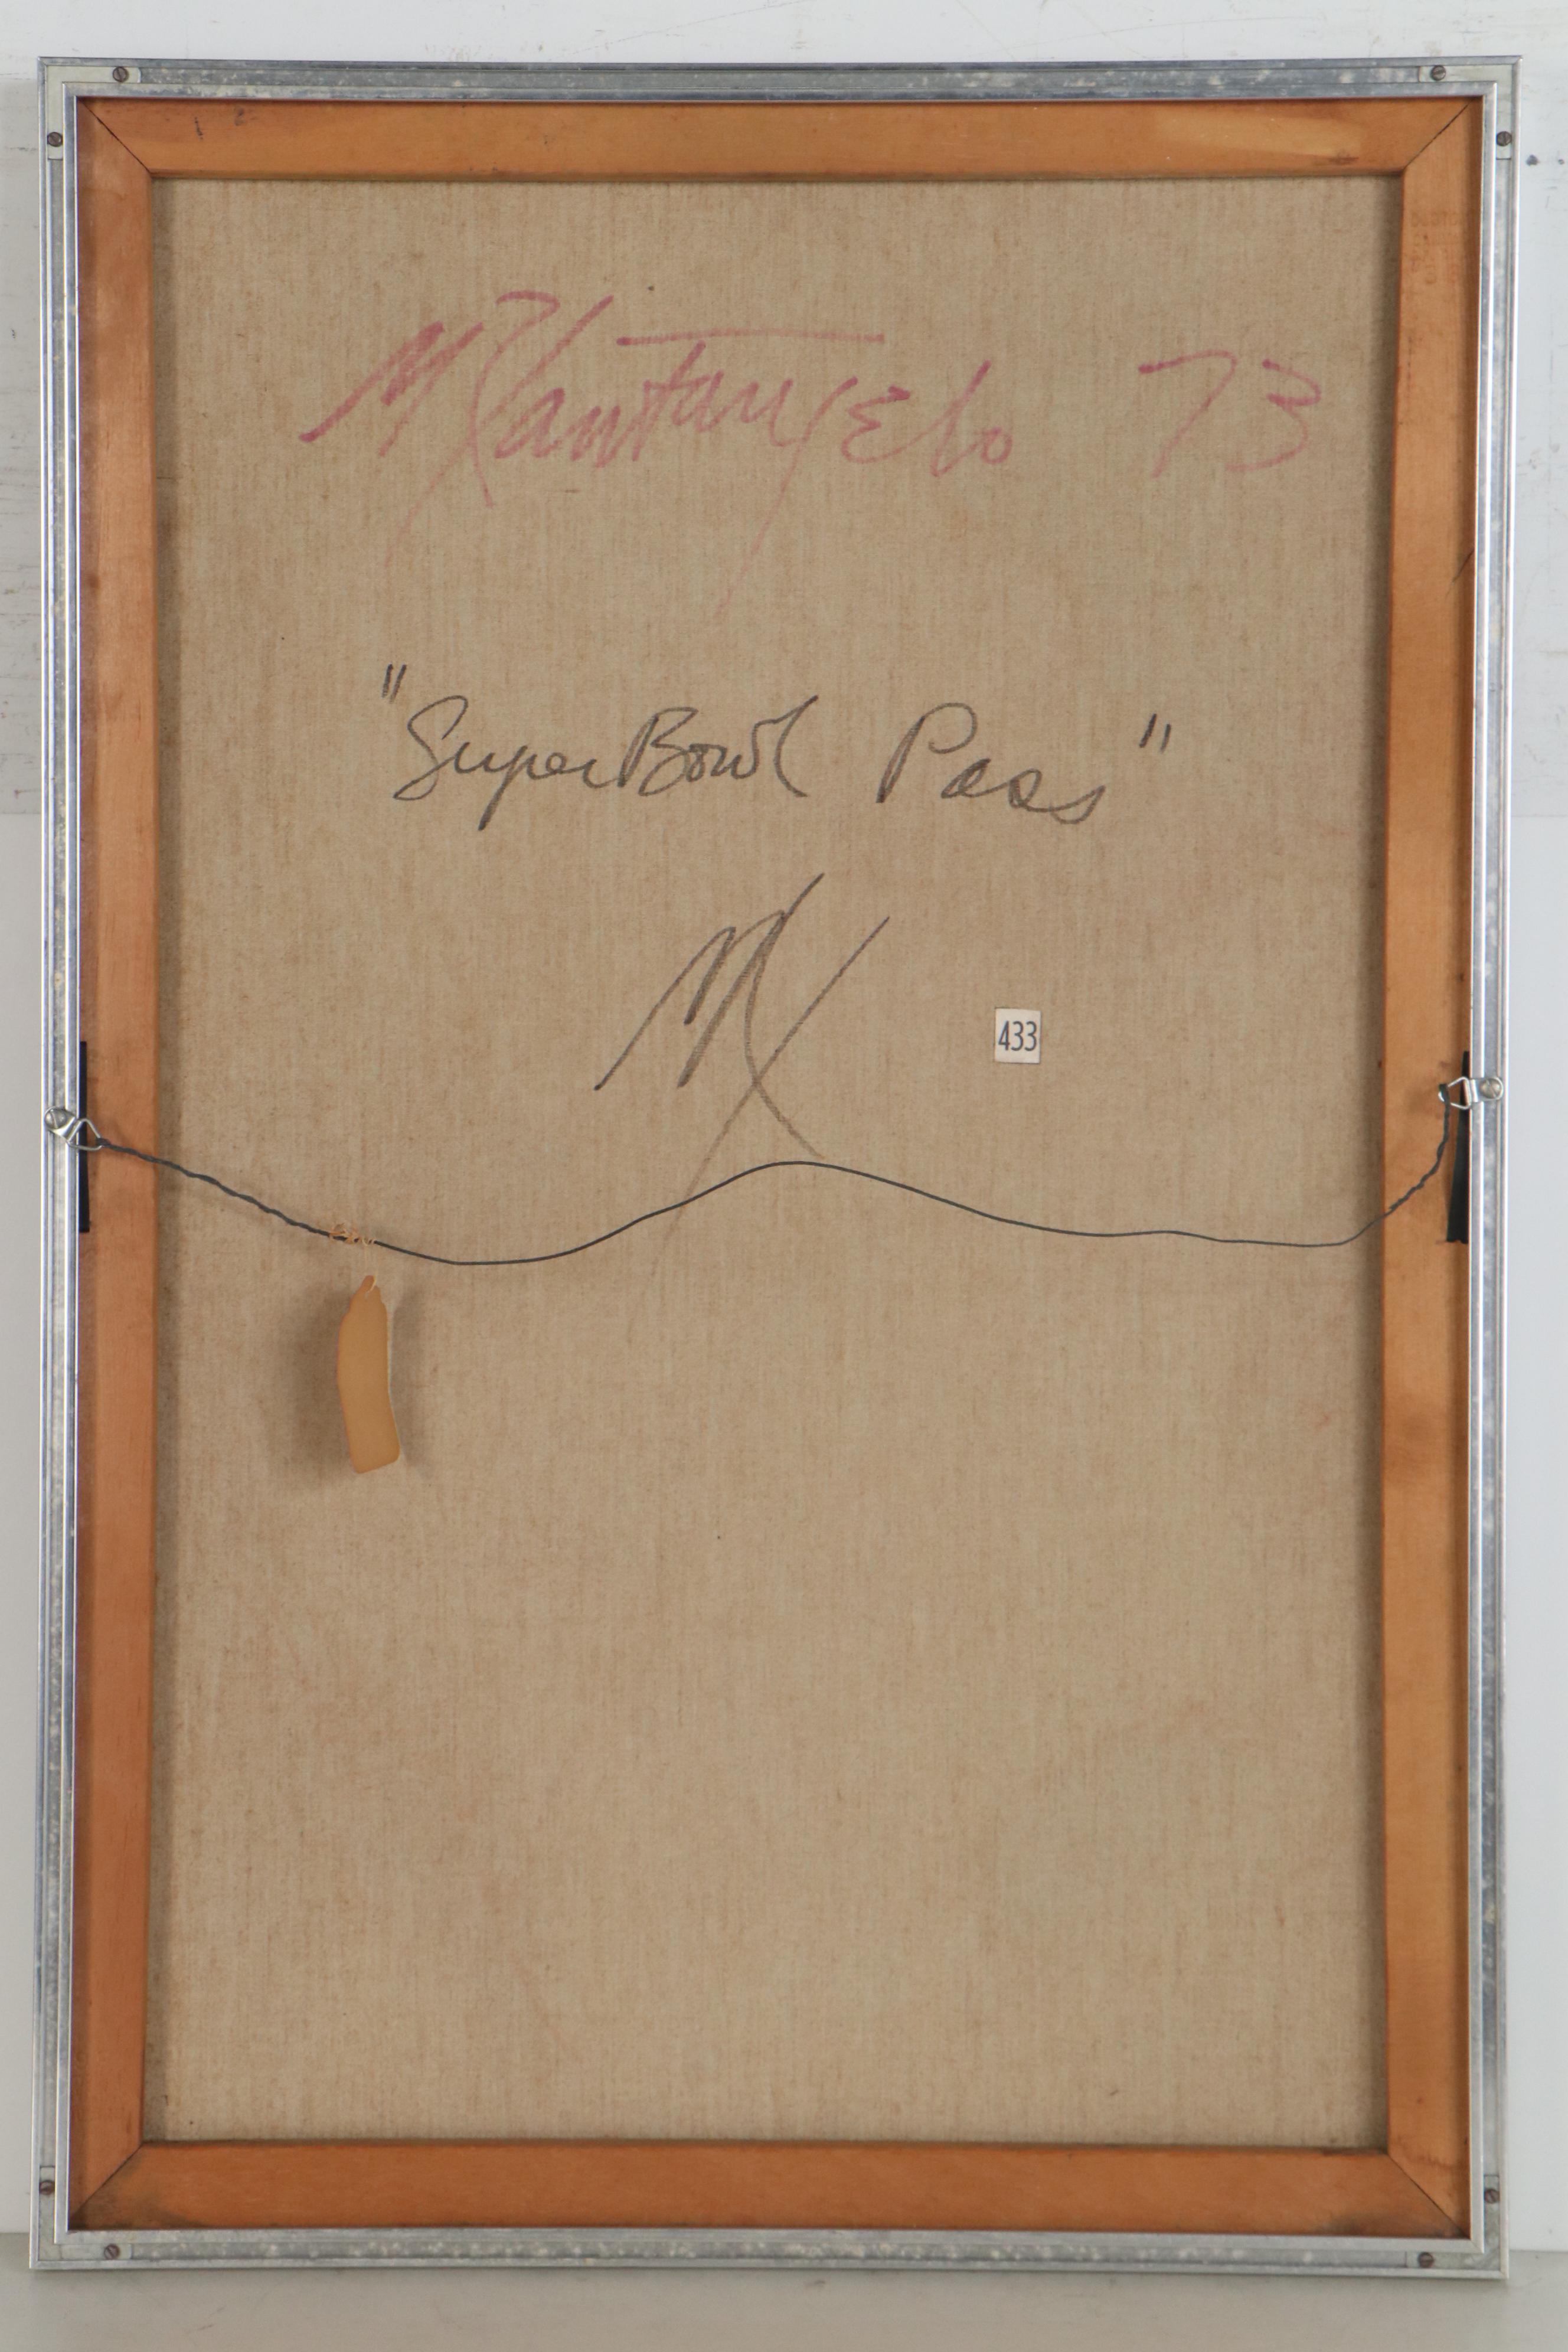 M Santangelo 73
"Super Bowl Pass"
MS
433